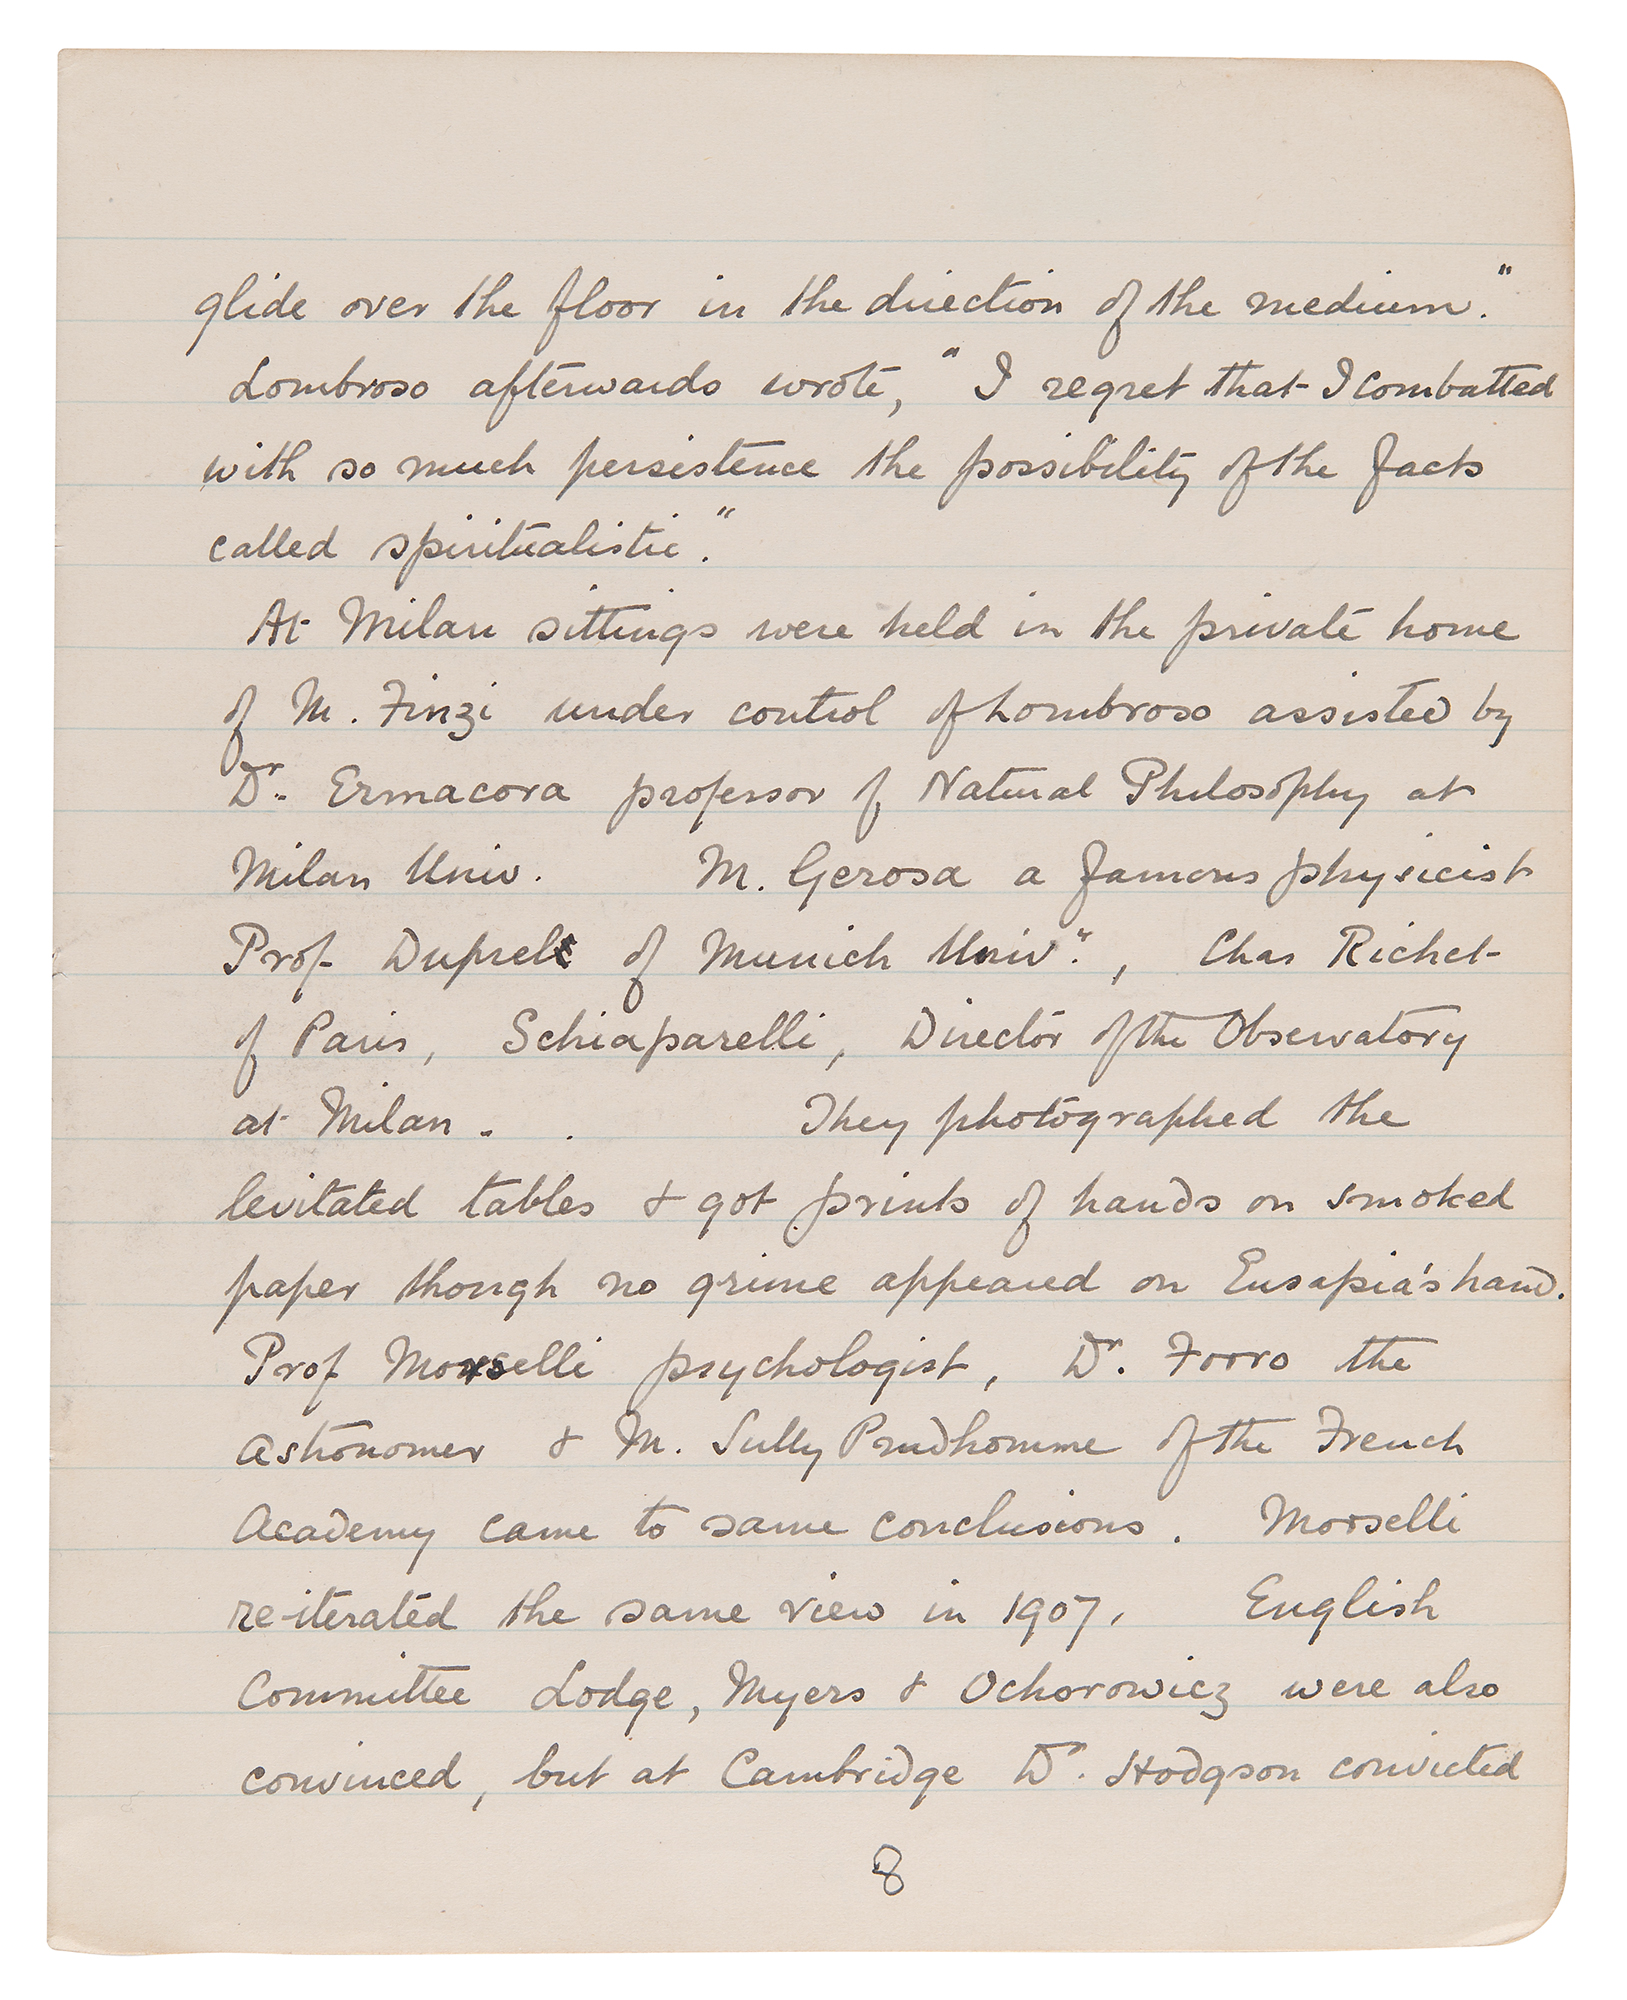 glide over the floor in the direction of the medium."
Lombroso afterwards wrote, "I regret that I combatted
with so much persistence the possibility of the facts
called spiritualistic."
At Milan sittings were held in the private home
of M. Finzi under control of Lombroso assisted by
Dr. Ermacora professor of Natural Philosophy at
Milan Univ. M. Gerosa a famous physicist
Prof Duprel of Munich Univ"., Chas Richet
of Paris, Schiaparelli, Director of the Observatory
at Milan. . They photographed the
levitated tables & got prints of hands on smoked
paper though no grime appeared on Eusapia's hand.
Prof Morselli psychologist, Dr. Forro the
astronomer & M. Sully Prudhomme of the French
Academy came to same conclusions. Morselli
re-iterated the same view in 1907. English
Committee Lodge, Myers & Ochorowicz were also
convinced, but at Cambridge Dr. Hodgson convicted
8